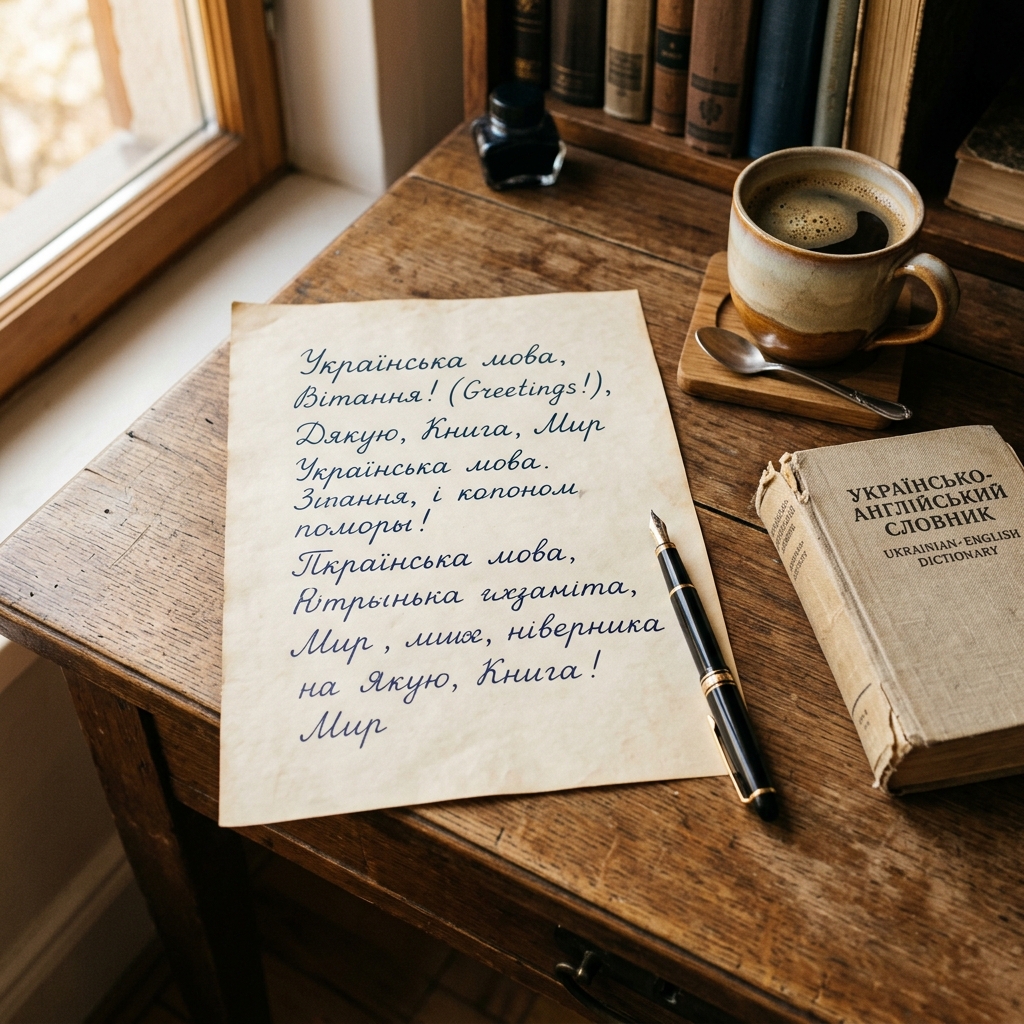 Українська мова,
Вітання! (Greetings!),
Дякую, Книга, Мир
Українська мова.
Зіпання, і копоном
поморы!
Пкраїнська мова,
ихзаміта,
Мир, ниверника
на Якую, Книга!
Мир
УКРАЇНСЬКО-
АНГЛІЙСЬКИЙ
СЛОВНИК
UKRAINIAN-ENGLISH
DICTIONARY